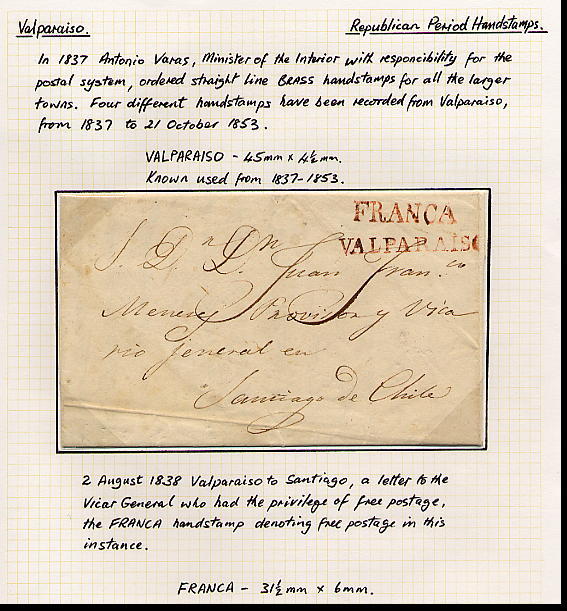 Valparaiso. Republican Period Handstamps.
In 1837 Antonio Varas, Minister of the Interior with responcibility for the
postal system, ordered straight line BRASS handstamps for all the larger
towns. Four different handstamps have been recorded from Valparaiso,
from 1837 to 21 October 1853.
VALPARAISO - 45mm x 4½mm.
Known used from 1837-1853.
FRANCA
VALPARAISO
S. Dn Dn Juan Franco
Meneses Provisor y Vica
rio jeneral en
Santiago de Chile
2 August 1838 Valparaiso to Santiago, a letter to the
Vicar General who had the privilege of free postage,
the FRANCA handstamp denoting free postage in this
instance.
FRANCA - 31½mm x 6mm.